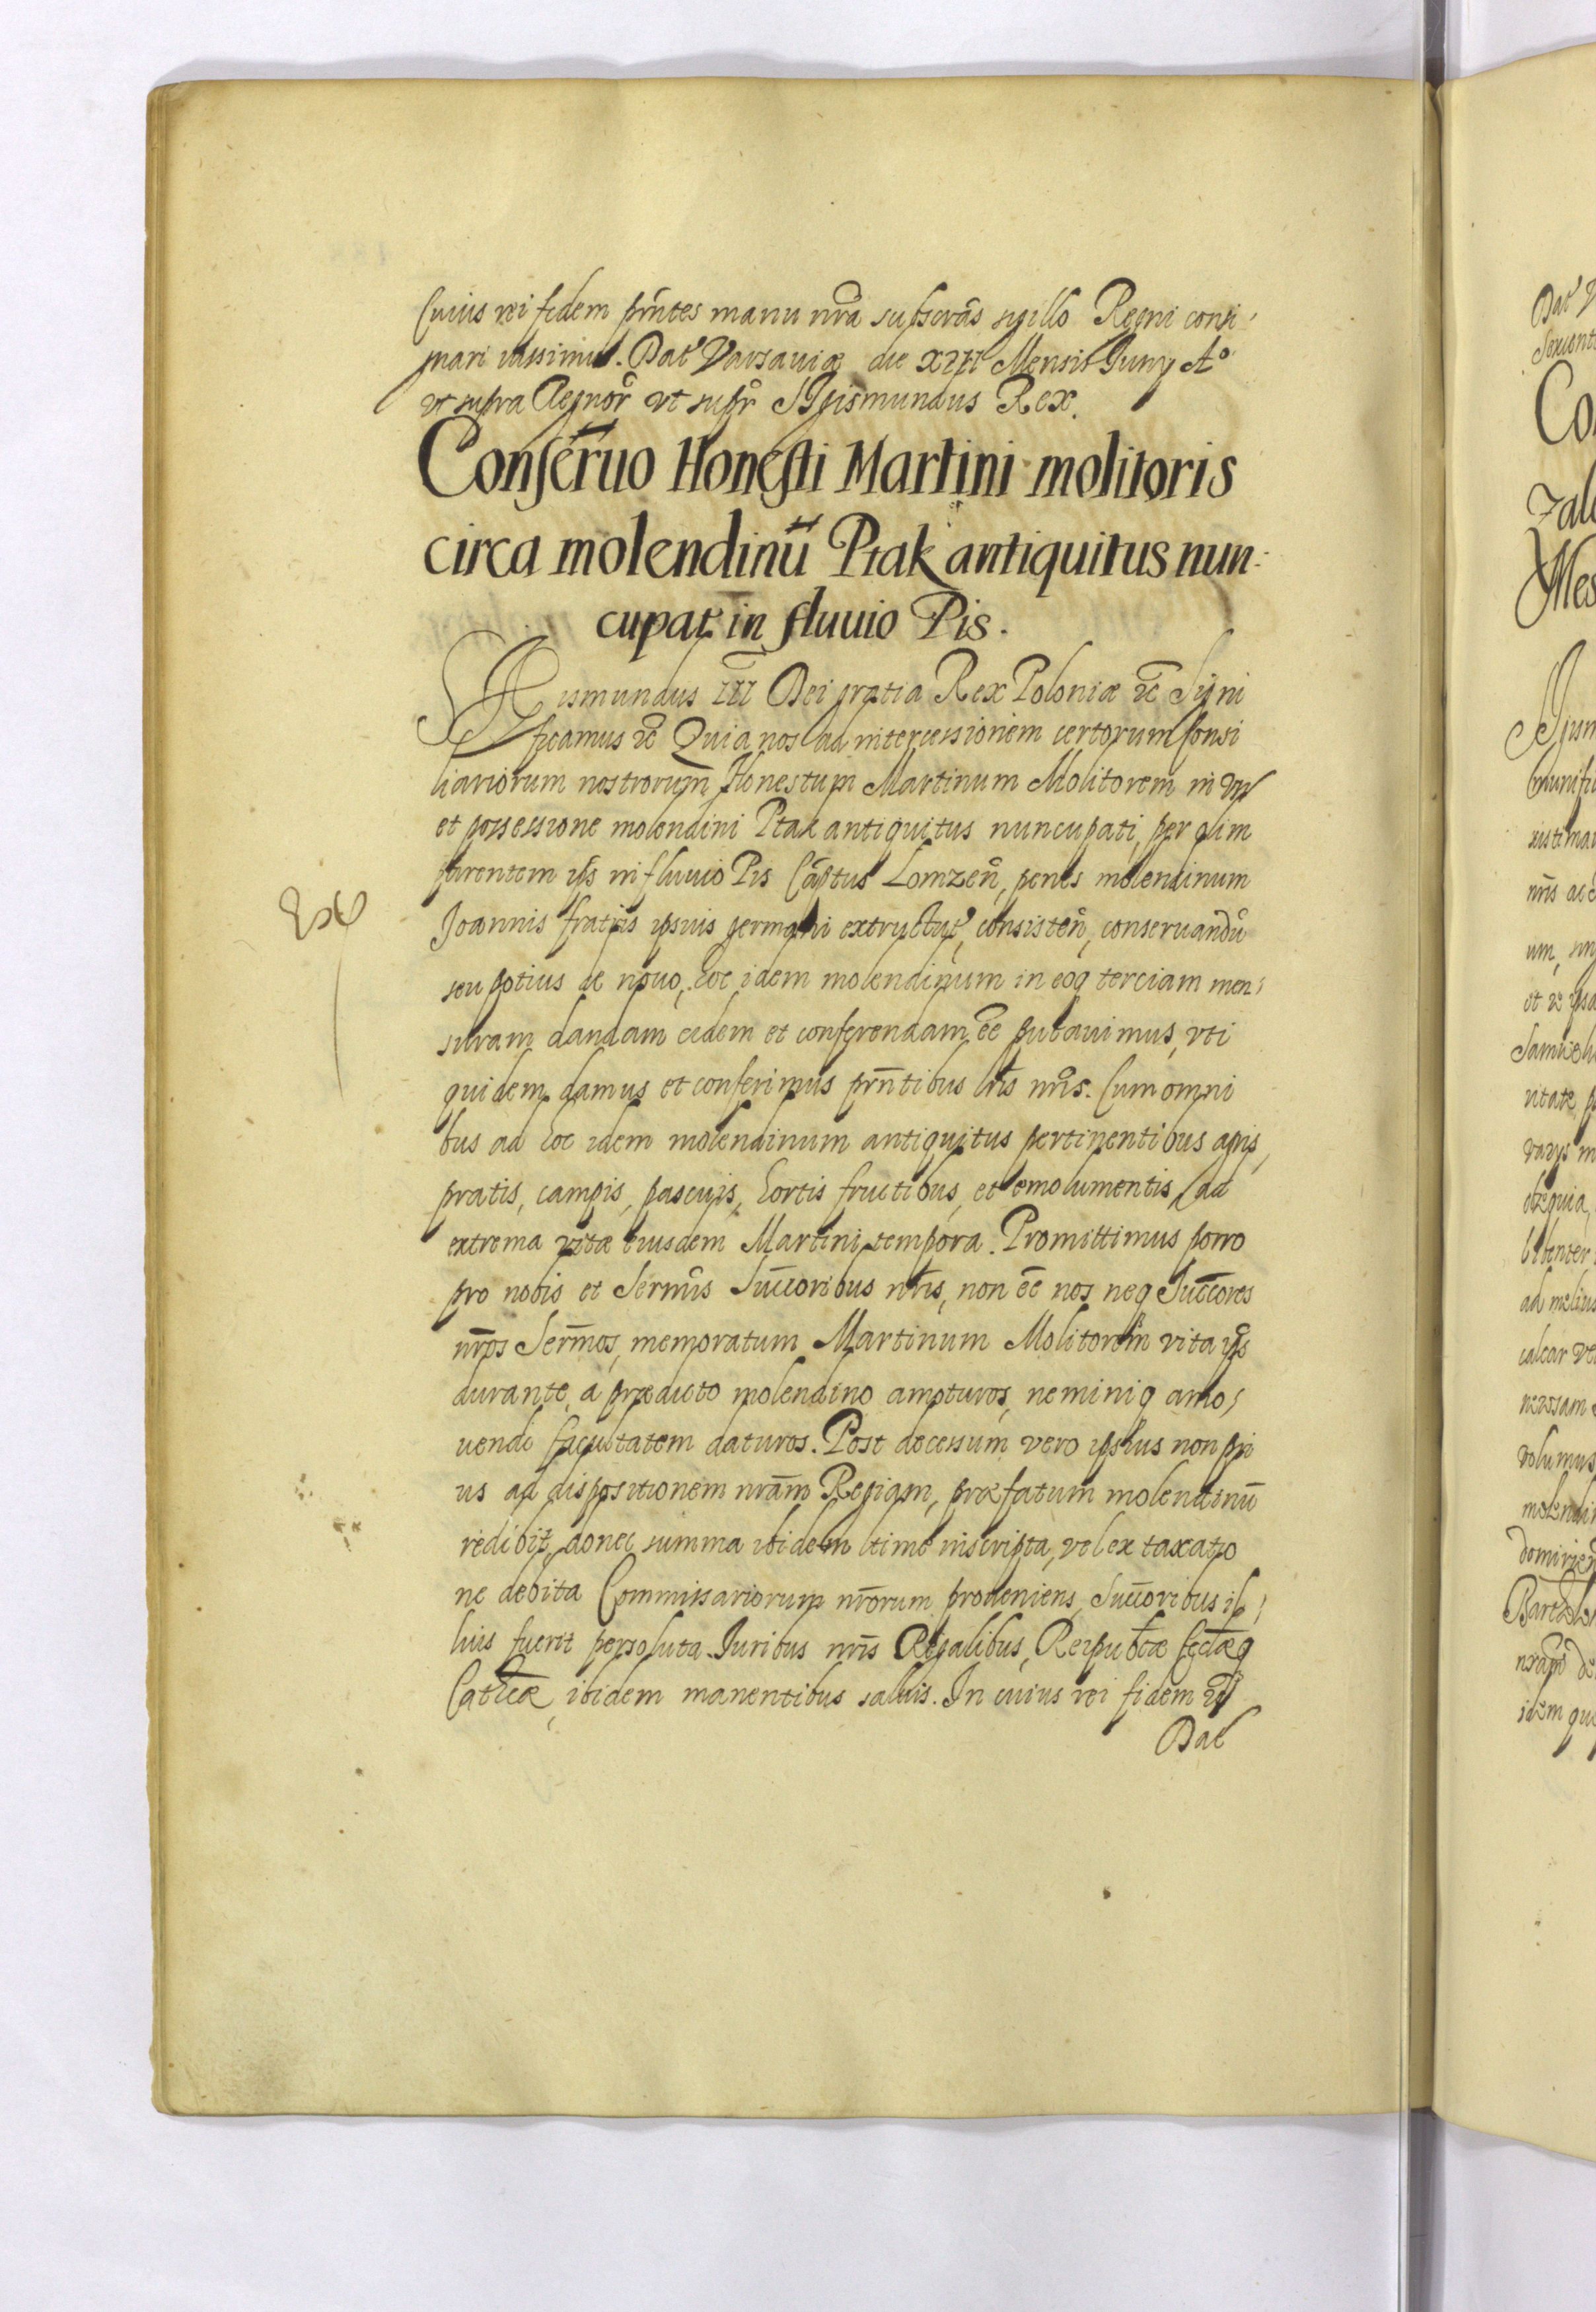 Cuius rei fidem pñtes manu nr̃a subscrãs sigillo Regni consi
gnari iussimus. Dat' Varsauiæ die XIII Mensis Iunij A°
vt supra Regnor̃ vt supr̃ Sigismundus Rex.
Conser̃uo Honesti Martini molitoris
circa molendinũ Ptak antiquitus nun-
cupat: in fluuio Pis.
Sigismundus III Dei gratia Rex Poloniæ &c̃ Signi
ficamus &c̃ Quia nos ad intercessionem certorum Consi
liariorum nostrorum Honestum Martinum Molitorem in vsu
et possessione molendini Ptak antiquitus nuncupati, per olim
parentem ips in fluuio Pis Cãptus Lomzeñ, penes molendinum
Joannis fratris ipsius germani extructu', consisteñ, conseruandũ
seu potius de nouo, hoc idem molendinum in eoq terciam men-
suram dandam eidem et conferendam eẽ putauimus, vti
quidem damus et conferimus prñtibus lr̃is nr̃is. Cum omni
bus ad hoc idem molendinum antiquitus pertinentibus agris,
pratis, campis, pascuis, hortis fructibus, et emolumentis, ad
extrema vitæ eiusdem Martini tempora. Promittimus porro
pro nobis et Sermĩs Succ̃oribus nr̃is, non eẽ nos neq Succ̃ores
nr̃os Serm̃os, memoratum Martinum Molitorem vita ips
durante, a prædicto molendino amoturos, neminiq amo-
uendi facultatem daturos. Post decessum vero ipsius non pri
us ad dispositionem nrãm Regiam, præfatum molendinũ
redibit, donec summa ibidem ltime inscripta, vel ex taxatio
ne debita Commissariorum nr̃orum proueniens, Succ̃oribus il-
lius fuerit persoluta. Iuribus nr̃is Regalibus, Reipub̃cæ Ecclæq
Cathcæ, ibidem manentibus saluis. In cuius rei fidem &c̃
Dat